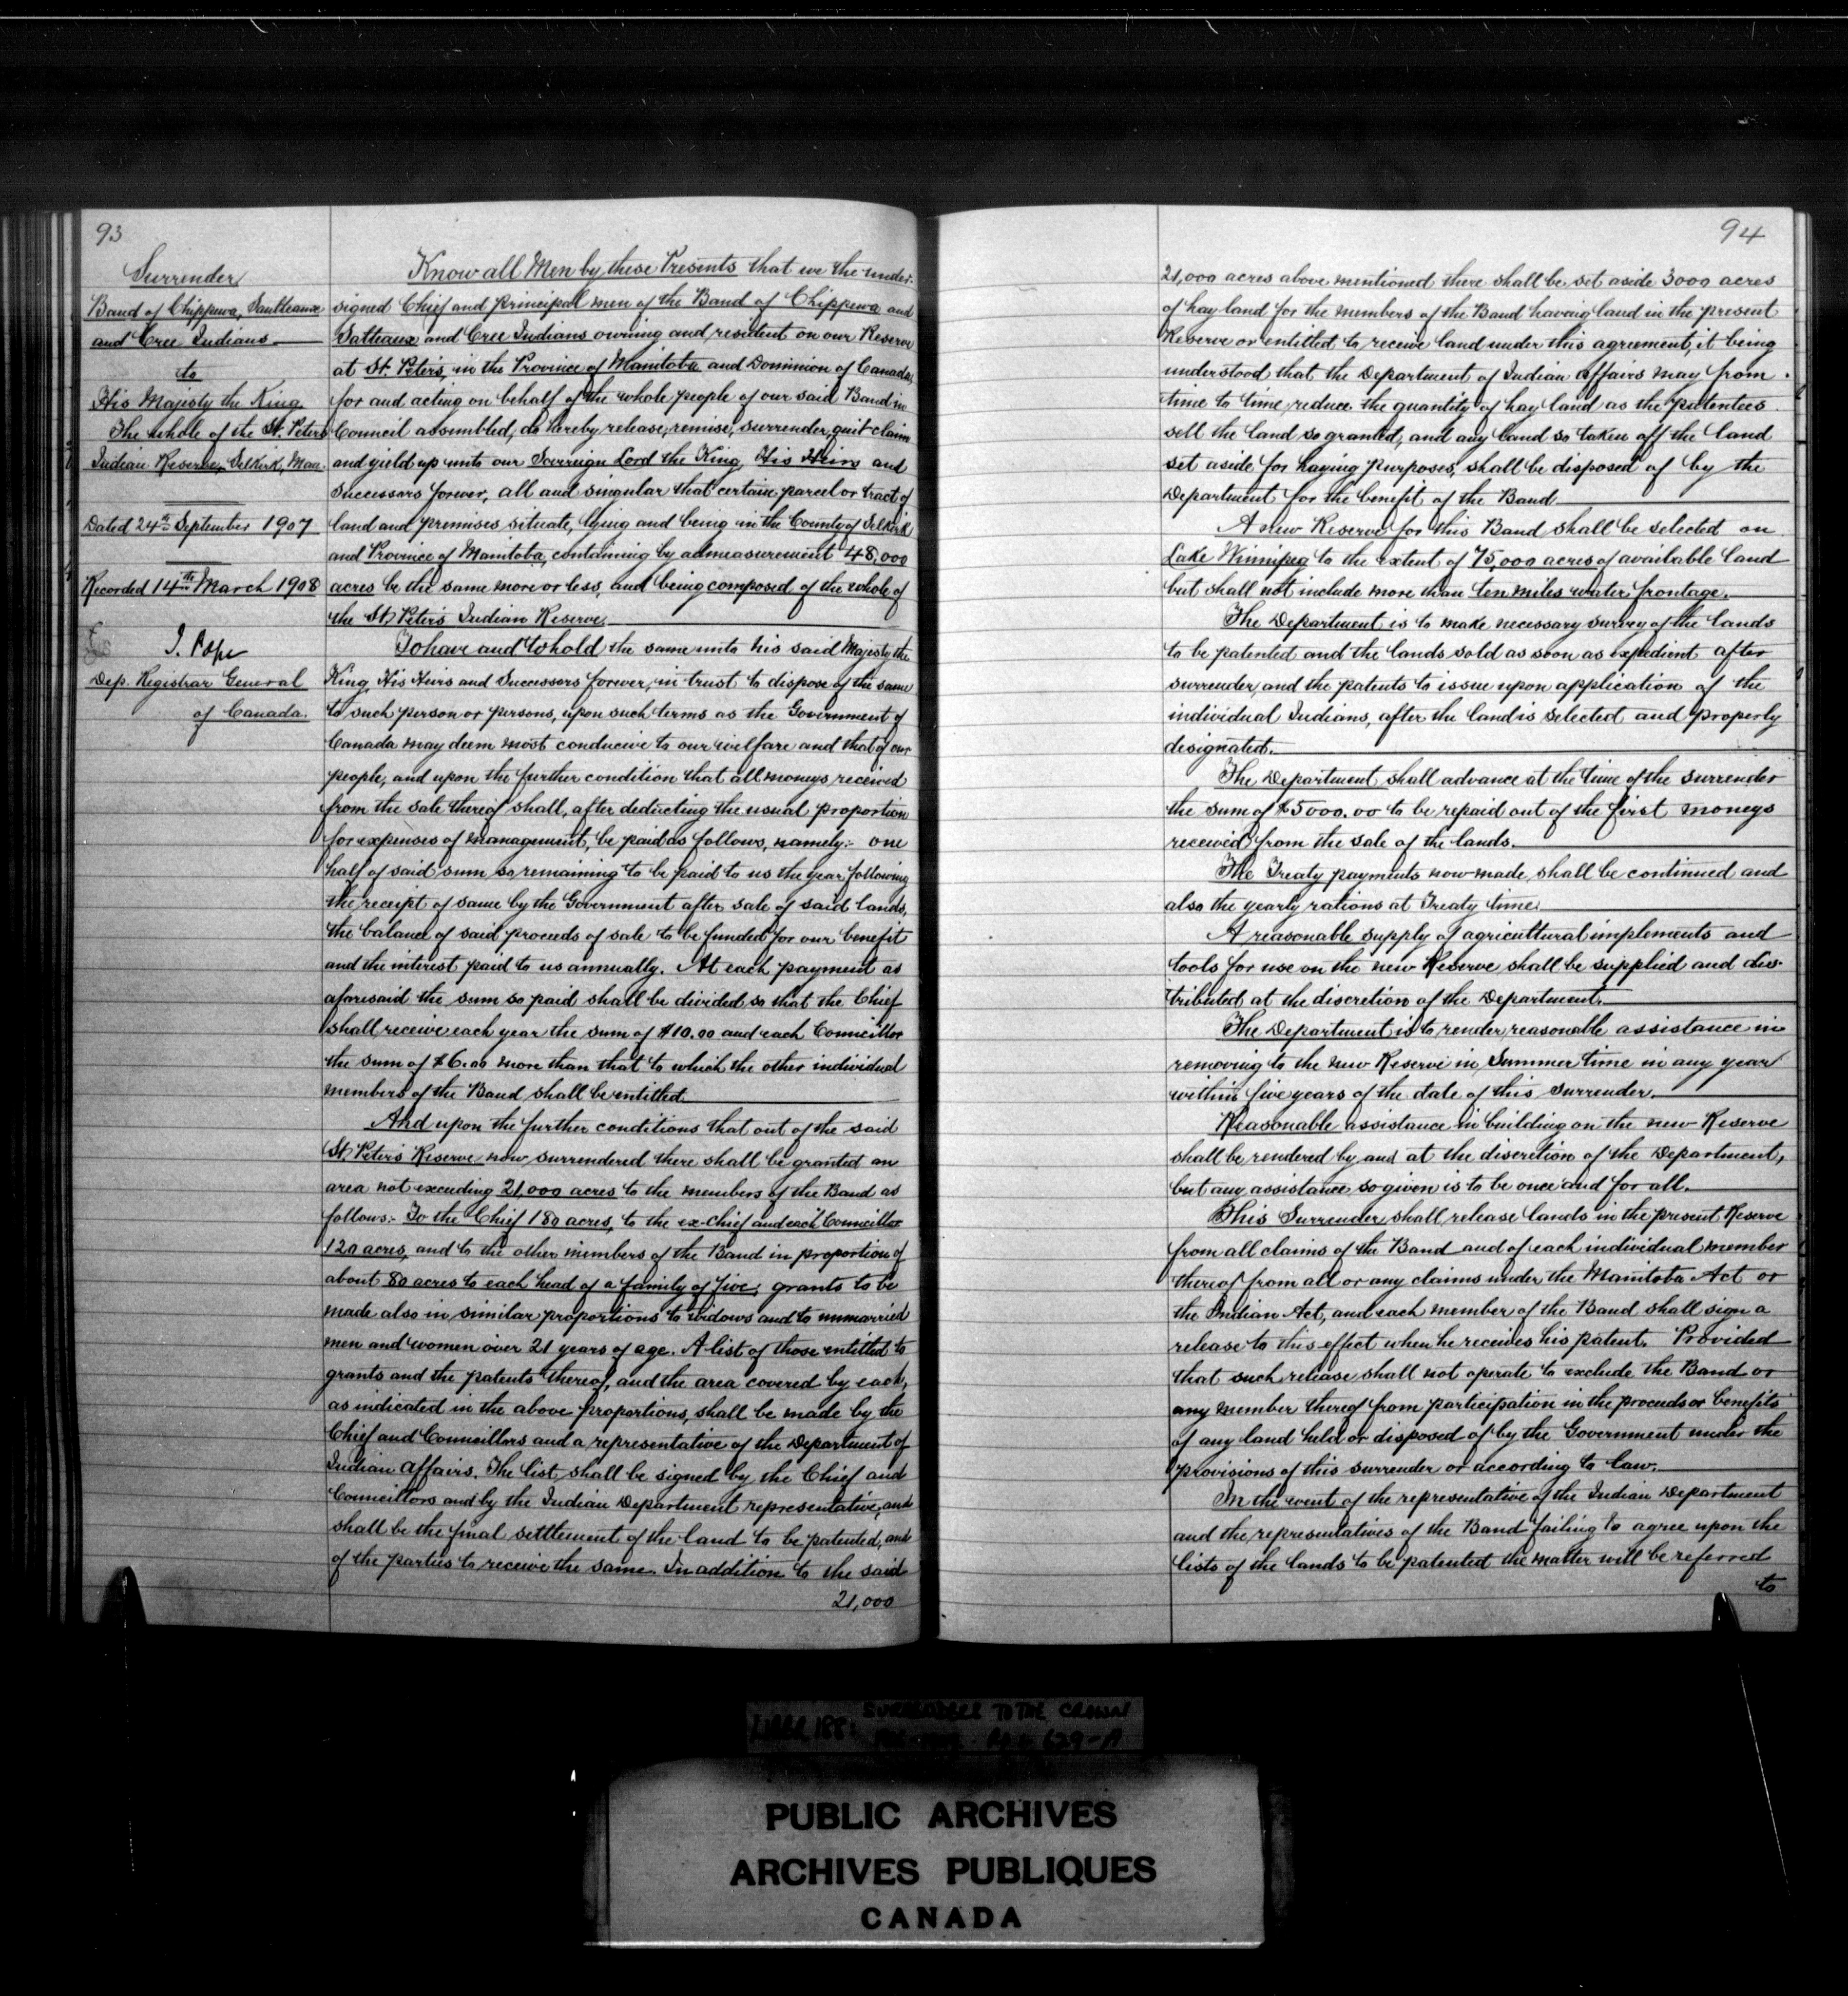 93
Surrender
Band of Chippewa, Saulteaux
and Cree Indians
to
His Majesty the King.
The whole of the St. Peters
Indian Reserve, Selkirk, Man.
Dated 24th September 1907
Recorded 14th March 1908
J. Pope
Dep. Registrar General
of Canada.
Know all Men by these Presents that we the under-
signed Chief and principal men of the Band of Chippewa and
Salteaux and Cree Indians owning and resident on our Reserve
at St. Peter's, in the Province of Manitoba and Dominion of Canada,
for and acting on behalf of the whole people of our said Band in
Council assembled, do hereby release, remise, surrender, quit-claim
and yield up unto our Sovereign Lord the King, His Heirs and
Successors forever, all and singular that certain parcel or tract of
land and premises situate, lying and being in the County of Selkirk
and Province of Manitoba, containing by admeasurement 48,000
acres be the same more or less, and being composed of the whole of
the St. Peter's Indian Reserve.
To have and to hold the same unto his said Majesty the
King, His Heirs and Successors forever, in trust to dispose of the same
to such person or persons, upon such terms as the Government of
Canada may deem most conducive to our welfare and that of our
people, and upon the further condition that all moneys received
from the sale thereof shall, after deducting the usual proportion
for expenses of management, be paid as follows, namely:- one
half of said sum so remaining to be paid to us the year following
the receipt of same by the Government after sale of said lands,
the balance of said proceeds of sale to be funded for our benefit
and the interest paid to us annually. At each payment as
aforesaid the sum so paid shall be divided so that the Chief
shall receive each year the sum of $10.00 and each Councillor
the sum of $6.00 more than that to which the other individual
members of the Band shall be entitled.
And upon the further conditions that out of the said
St. Peter's Reserve now surrendered there shall be granted an
area not exceeding 21,000 acres to the members of the Band as
follows:- To the Chief 180 acres, to the ex-chief and each Councillor
120 acres, and to the other members of the Band in proportion of
about 80 acres to each head of a family of five; grants to be
made also in similar proportions to widows and to unmarried
men and women over 21 years of age. A list of those entitled to
grants and the patents thereof, and the area covered by each,
as indicated in the above proportions, shall be made by the
Chief and Councillors and a representative of the Department of
Indian Affairs. The list shall be signed by the Chief and
Councillors and by the Indian Department representative, and
shall be the final settlement of the land to be patented, and
of the parties to receive the same. In addition to the said
21,000
94
21,000 acres above mentioned there shall be set aside 3000 acres
of hay land for the members of the Band having land in the present
Reserve or entitled to receive land under this agreement, it being
understood that the Department of Indian Affairs may from
time to time reduce the quantity of hay land as the patentees
sell the land so granted, and any land so taken off the land
set aside for haying purposes, shall be disposed of by the
Department for the benefit of the Band
A new Reserve for this Band shall be selected on
Lake Winnipeg to the extent of 75,000 acres of available land
but shall not include more than ten miles water frontage.
The Department is to make necessary survey of the lands
to be patented and the lands sold as soon as expedient after
surrender, and the patents to issue upon application of the
individual Indians, after the land is selected and properly
designated.
The Department shall advance at the time of the surrender
the sum of $5000.00 to be repaid out of the first moneys
received from the sale of the lands.
The Treaty payments now made shall be continued and
also the yearly rations at Treaty time.
A reasonable supply of agricultural implements and
tools for use on the new Reserve shall be supplied and dis-
tributed at the discretion of the Department.
The Department is to render reasonable assistance in
removing to the new Reserve in Summer time in any year
within five years of the date of this Surrender.
Reasonable assistance in building on the new Reserve
shall be rendered by and at the discretion of the Department,
but any assistance so given is to be once and for all.
This Surrender shall release lands in the present Reserve
from all claims of the Band and of each individual member
thereof from all or any claims under the Manitoba Act or
the Indian Act, and each member of the Band shall sign a
release to this effect when he receives his patent. Provided
that such release shall not operate to exclude the Band or
any member thereof from participation in the proceeds or benefits
of any land held or disposed of by the Government under the
provisions of this surrender or according to law.
In the event of the representative of the Indian Department
and the representatives of the Band failing to agree upon the
lists of the lands to be patented the matter will be referred
to
SURRENDERS TO THE CROWN
PUBLIC ARCHIVES
ARCHIVES PUBLIQUES
CANADA